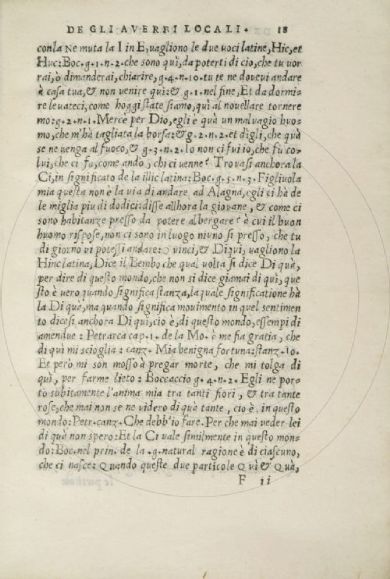 DE GLI AVERBI LOCALI. 18
con la Ne muta la I in E, uagliono le due uoci latine, Hic, et
Huc: Boc. g. 1. n. 2. che sono quì, da poterti di cio, che tu uor
rai, o dimanderai, chiarire, g. 4. n. 10. tu te ne doueui andare
à casa tua, & non uenire quì: & g. 1. nel fine, Et da dormi
re leuateci, come hoggi state siamo, quì al nouellare tornere
mo: g. 2. n. 1. Mercè per Dio, egli è quà un maluagio huo=
mo, che m'hà tagliata la borsa: & g. 2. n. 2. et digli, che quà
se ne uenga al fuoco, & g. 3. n. 2. Io non ci fui io, che fu co
lui, che ci fu, come andò, chi ci uenne? Trouasi anchora la
Ci, in significato de la illic latina: Boc. g. 5. n. 3. Figliuola
mia questa non è la via di andare ad Alagna, egli ci hà de
le miglia piu di dodici: disse allhora la giouane, & come ci
sono habitanze presso da potere albergare? è cui il buon
huomo rispose, non ci sono in luogo niuno si presso, che tu
di giorno vi potessi andare: Quinci, & Di quì, uagliono la
Hinc latina, Dice il Bembo che qual uolta si dice Di quà,
per dire di questo mondo, che non si dice giamai di quì, que
sto è uero quando significa stanza, la quale significatione hà
la Di quà, ma quando significa mouimento in quel sentimen
to dicesi anchora Di quì, cio è, di questo mondo, essempi di
amendue: Petrarca cap. 1. de la Mo. è me fia gratia, che
di quì mi scioglia: canz. Mia benigna fortuna: stanz. 10.
Et però mi son mosso à pregar morte, che mi tolga di
quì, per farme lieto: Boccaccio g. 4. n. 2. Egli ne por=
tò subitamente l'anima mia tra tanti fiori, & tra tante
rose, che mai non se ne videro di quà tante, cio è in questo
mondo: Petr. canz. Che debb'io fare. Per che mai veder lei
di quà non spero: Et la Ci vale similmente in questo mon=
do: Boc. nel prin. de la .g. natural ragione è di ciascuno,
che ci nasce: Quando queste due particole Quì & Quà,
F ii